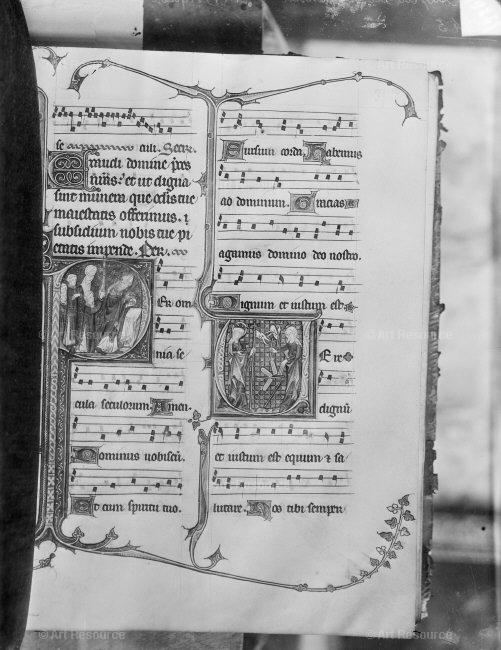 se culi. Secr.
Exaudi domine pres
nras: et ut digna
sint munera que oculis tue
maiestatis offerimus. i
subsidium nobis tue pi
etatis impende. Per.
Per om
nia se
cula seculorum. Amen.
Dominus vobiscū.
Et cum spiritu tuo.
Sursum corda. Habemus
ad dominum. Gracias
agamus domino deo nostro.
Dignum et iustum est.
Vere
dignū
et iustum est equum & sa
lutare. Nos tibi semper
© Art Resource
© Art Resource
© Art Resource
© Art Resource